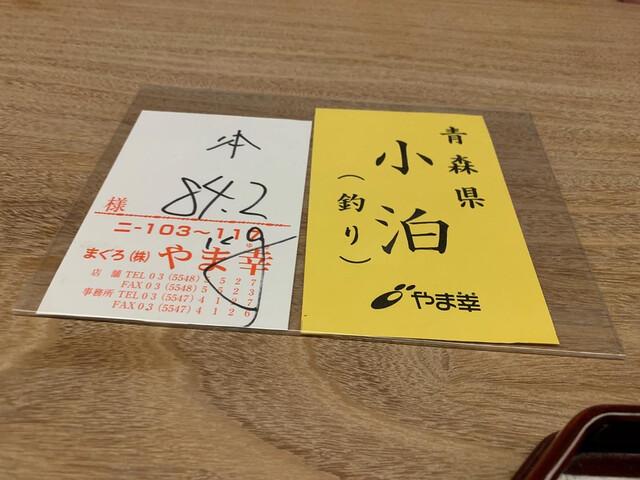 本
84.2
kg
様
ニ-103~117
まぐろ(株)やま幸
店 舗 TEL 03 (5548)
FAX 03 (5548)
事務所 TEL 03 (5547)
FAX 03 (5547) 4126
青森県
小泊
(釣り)
やま幸